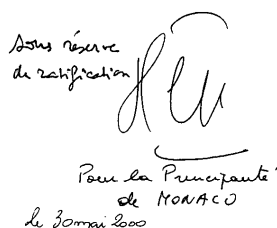 sous réserve
de ratification
Pour la Principauté
de MONACO
le 30 mai 2000